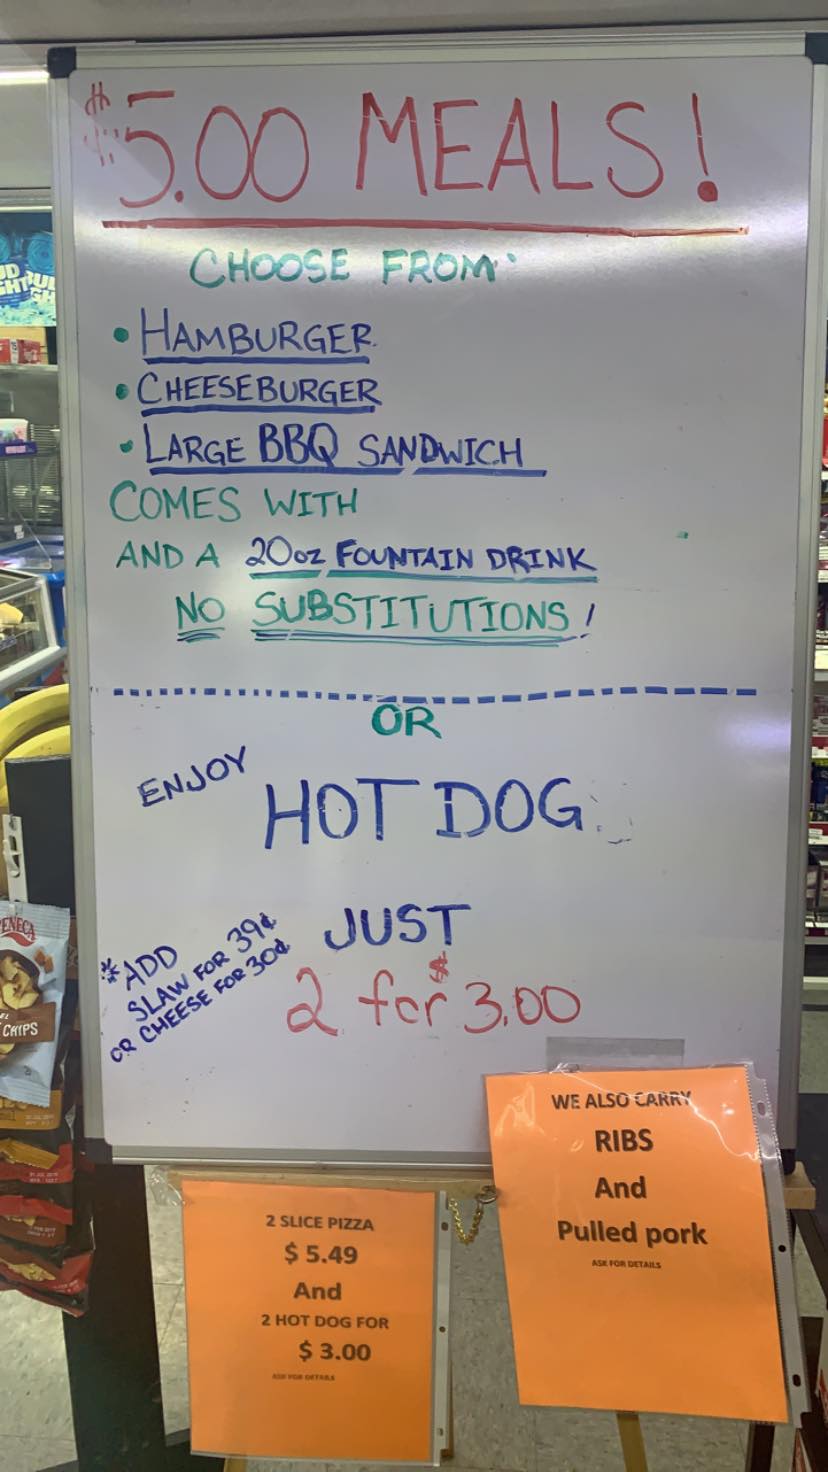 $5.00 MEALS!
CHOOSE FROM:
• HAMBURGER
• CHEESEBURGER
• LARGE BBQ SANDWICH
COMES WITH
AND A 20oz FOUNTAIN DRINK
NO SUBSTITUTIONS!
OR
ENJOY
HOT DOG
JUST
2 for $3.00
*ADD
SLAW FOR 39¢
OR CHEESE FOR 30¢
WE ALSO CARRY
RIBS
And
Pulled pork
ASK FOR DETAILS
2 SLICE PIZZA
$ 5.49
And
2 HOT DOG FOR
$ 3.00
ASK FOR DETAILS
CHIPS